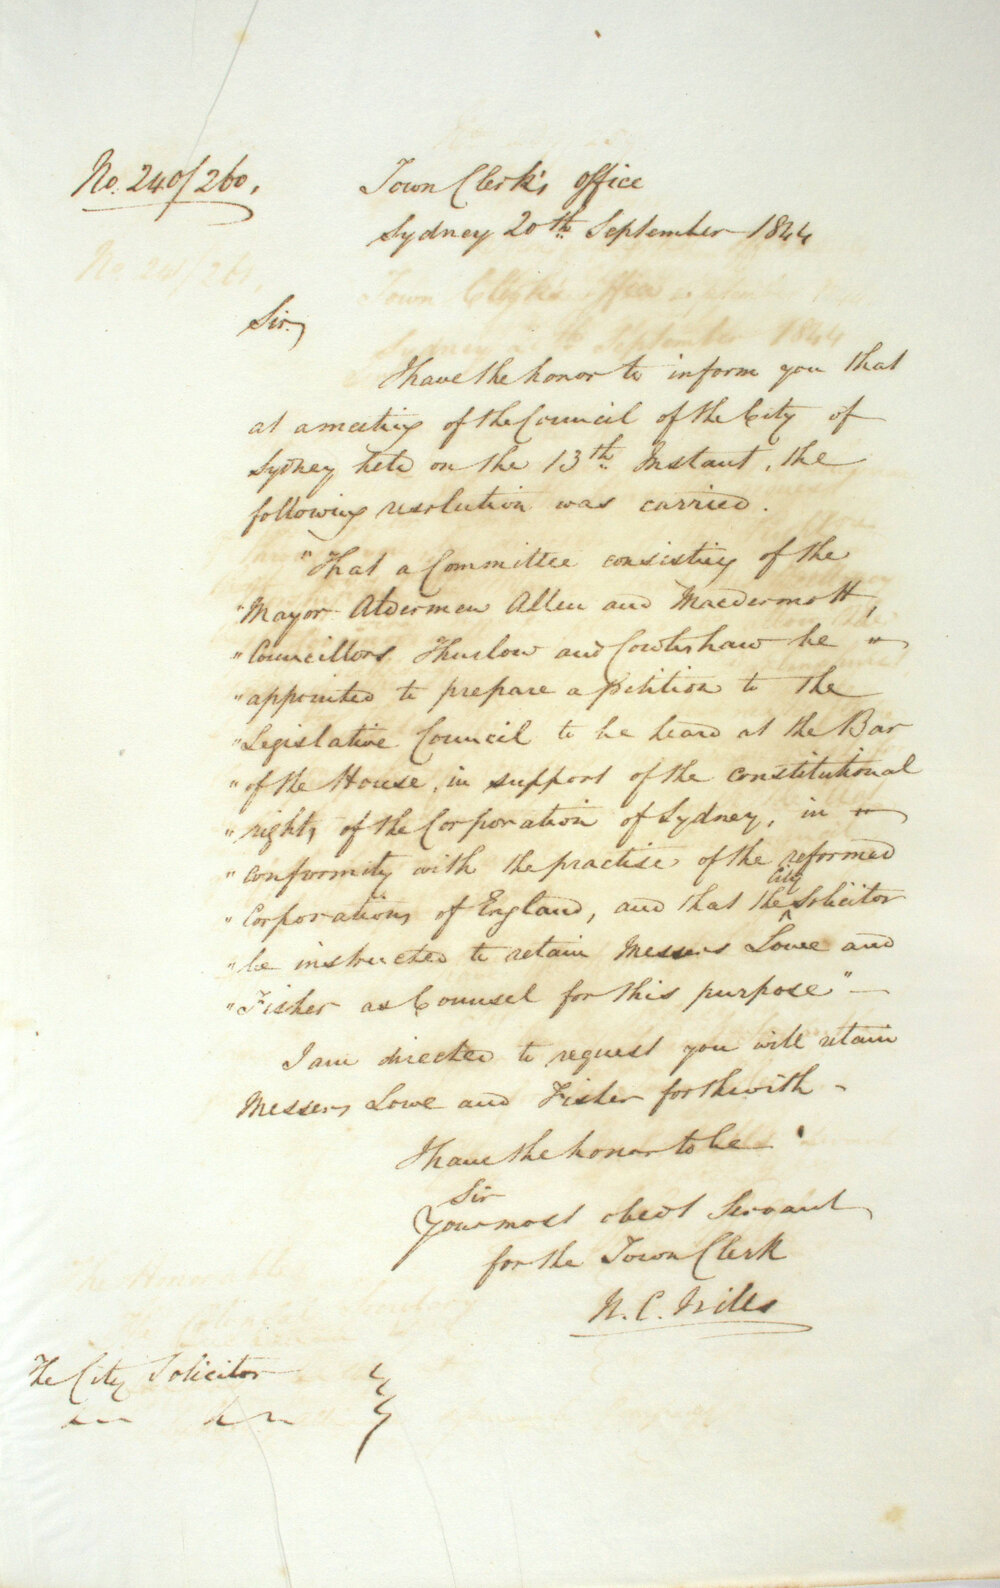 No. 240/260.
Town Clerk's office
Sydney 20th September 1844
Sir,
I have the honor to inform you that
at a meeting of the Council of the City of
Sydney held on the 13th Instant, the
following resolution was carried.
"That a Committee consisting of the
"Mayor Aldermen Allen and Macdermott,
"Councillors Thurlow and Cowlishaw be "
"appointed to prepare a petition to the
"Legislative Council to be heard at the Bar
"of the House, in support of the constitutional
"rights of the Corporation of Sydney, in "
"conformity with the practise of the reformed
"Corporations of England, and that the City Solicitor
"be instructed to retain Messers Lowe and
"Fisher as Counsel for this purpose" —
I am directed to request you will retain
Messers Lowe and Fisher forthwith -
I have the honor to be
Sir
Your most obedt Servant
for the Town Clerk
The City Solicitor